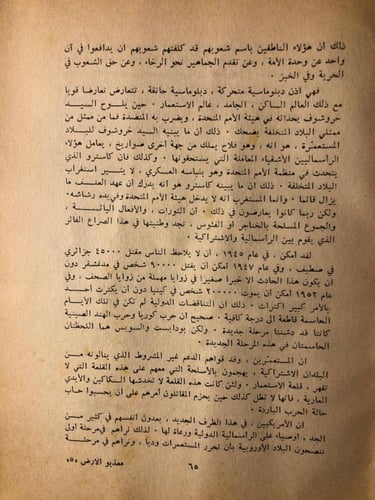 ذلك أن هؤلاء الناطقين باسم شعوبهم قد كلفتهم شعوبهم ان يدافعوا في آن
واحد عن وحدة الأمة ، وعن تقدم الجماهير نحو الرخاء ، وعن حق الشعوب في
الحرية وفي الخبز .
فهي اذن دبلوماسية متحركة ، دبلوماسية حانقة ، تتعارض تعارضا قويا
مع ذلك العالم الساكن ، الجامد ، عالم الاستعمار . حين يلوح السيد
خروشوف بحذائه في هيئة الأمم المتحدة ، ويضرب به المنضدة فما من ممثل من
ممثلي البلاد المتخلفة يضحك . ذلك أن ما يبينه السيد خروشوف للبلاد
المستعمرة ، هو انه ، وهو فلاح يملك من جهة أخرى صواريخ ، يعامل هؤلاء
الرأسماليين الأشقياء المعاملة التي يستحقونها . وكذلك فان كاسترو الذي
يتحدث في منظمة الأمم المتحدة وهو بلباسه العسكري ، لا يثير استغراب
البلاد المتخلفة . ذلك ان ما يبينه كاسترو هو انه يدرك أن عهد العنف ما
يزال قائما . وانما المستغرب انه لا يدخل هيئة الأمم المتحدة وفي يده رشاشه.
ولكن ربما كانوا يعارضون في ذلك . ان الثورات ، والأفعال اليائسة ،
والجموع المسلحة بالخناجر أو الفئوس ، تجد وطنيتها في هذا الصراع الفائر
الذي يقوم بين الرأسمالية والاشتراكية .
لقد امكن ، في عام ١٩٤٥ ، ان لا يلاحظ الناس مقتل ٤٥٠٠٠ جزائري
في صطيف ، وفي عام ١٩٤٧ امكن أن يقتل ٩٠٠٠٠ شخص في مدغشقر دون
ان يكون هذا الحادث الا خبرا صغيرا في زوايا مهملة من زوايا الصحف ، وفي
عام ١٩٥٢ أمكن أن يموت ٢٠٠٠٠٠ شخص في كينيا دون أن يكترث أحد
بالأمر كبير اكتراث . ذلك ان التناقضات الدولية لم تكن في تلك الأيام
الحاسمة قاطعة الى درجة كافية . صحيح ان حرب كوريا وحرب الهند الصينية
كانتا قد دشنتا مرحلة جديدة . ولكن بودابست والسويس هما اللحظتان
الحاسمتان في هذه المرحلة الجديدة .
ان المستعمرين ، وقد قواهم الدعم غير المشروط الذي ينالونه من
البلدان الاشتراكية ، يهجمون بالأسلحة التي معهم على هذه القلعة التي لا
تقهر ، قلعة الاستعمار . ولئن كانت هذه القلعة لا تخدشها السكاكين والأيدي
العارية ، فانها لا تظل كذلك حين يحزم المقاتلون أمرهم على ان يحسبوا حساب
حالة الحرب الباردة .
ان الأمريكيين ، في هذا الظرف الجديد ، يعدون أنفسهم في كثير من
الجد ، أوصياء على الرأسمالية الدولية ورعاة لها . لذلك نراهم في مرحلة أولى
ينصحون البلاد الأوروبية بأن تحرر المستعمرات وديا ، ونراهم في مرحلة
٦٥
معذبو الارض «٥»